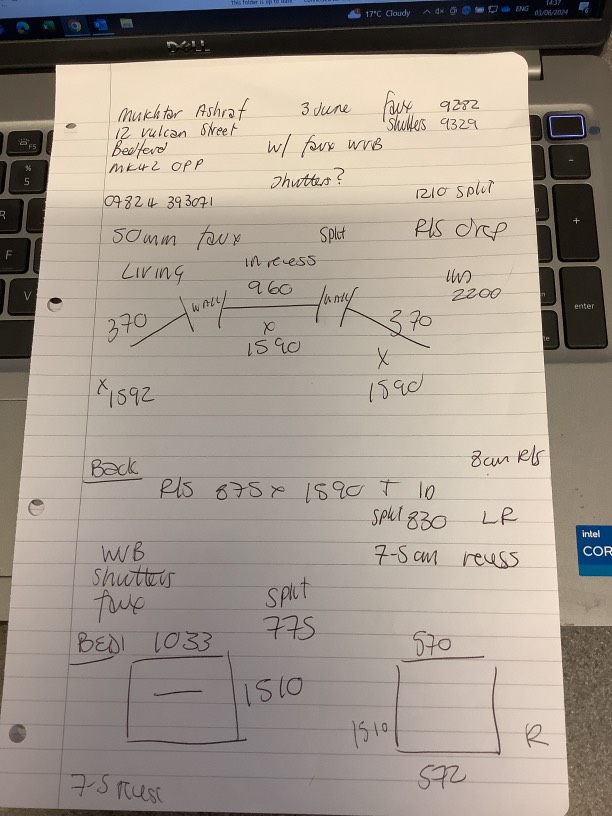 17°C Cloudy
ENG
14:37
03/06/2024
DELL
Mukhtar Ashraf 3 June faux 9282
12 vulcan street shutters 9329
Bedford w/ faux WVB
MK42 OPP shutters?
07824 393071 1210 split
50mm faux split R/S drop
Living in recess
960 2200
370 WALL WALL 370
x
1590
x 1592 x 1590
Back 8cm R/S
R/S 875 x 1590 T 10
split 830 LR
WVB 7-5 cm recess
shutters
faux split
775
BED1 1033 570
1510
1510 R
572
7-5 recess
F5
%
5
R
F
V
-
+
enter
intel
COR